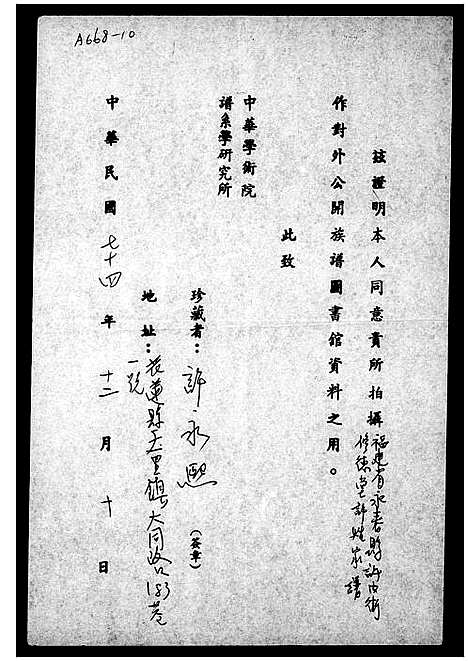 A668-10
茲證明本人同意貴所拍攝福建省永春縣
修德堂許姓家譜
作對外公開族譜圖書館資料之用。
此致
中華學術院
譜系學研究所
珍藏者：許永熙（簽章）
地址：花蓮縣玉里鎮大同路183巷
一號
中華民國七十四年十二月十日